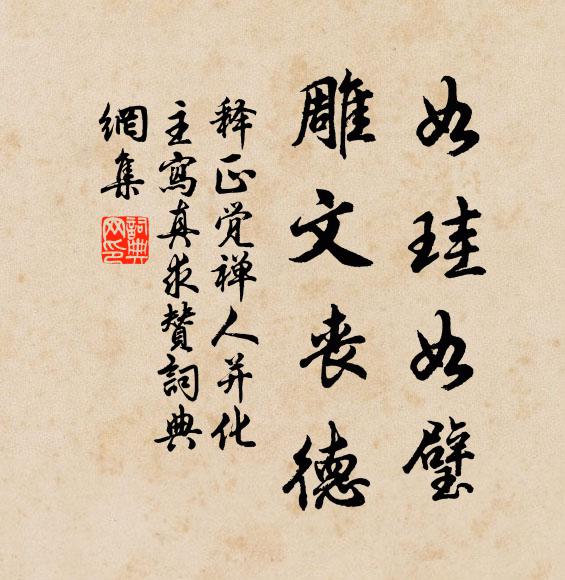 如珪如璧
雕文丧德
释正觉禅人并化
主寫真求贊詞典
網集
詞典網印